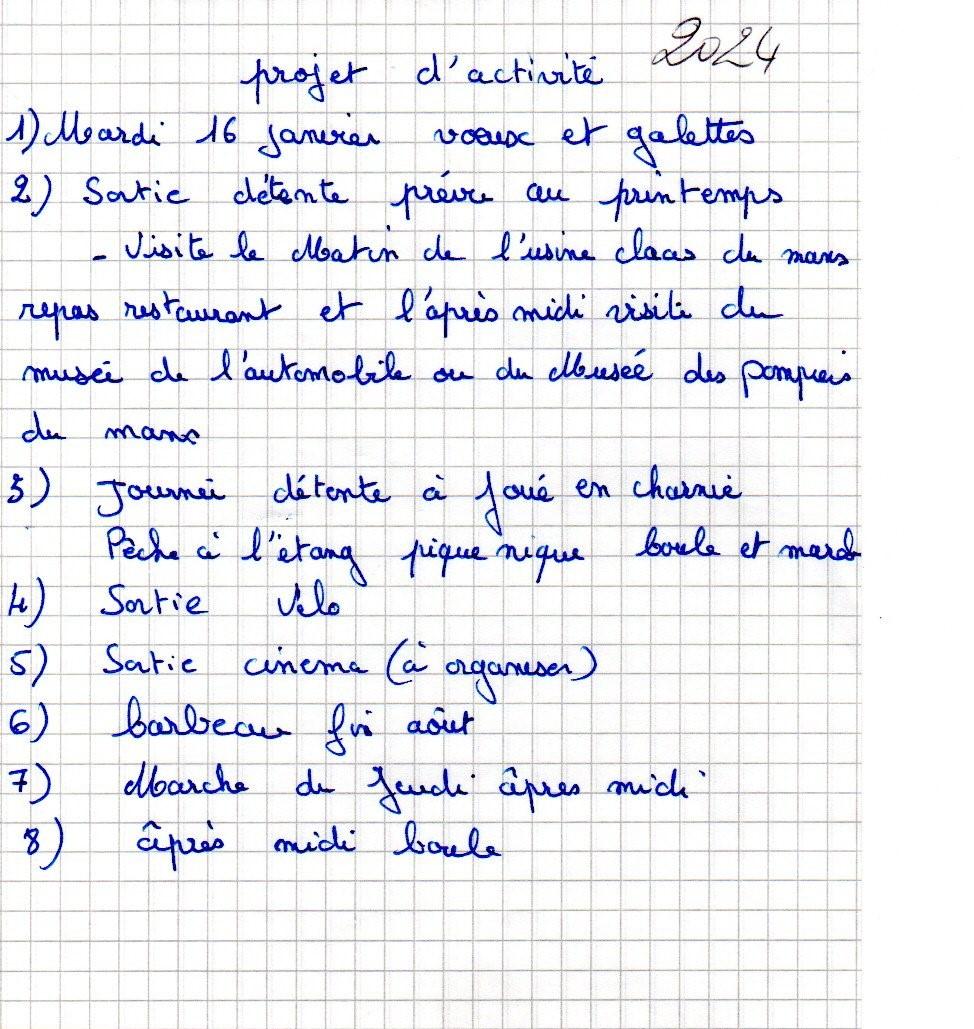 projet d'activité 2024
1) Mardi 16 janvier voeux et galettes
2) Sortie détente prévue au printemps
- Visite le Matin de l'usine claas du mans
repas restaurant et l'après midi visite du
musée de l'automobile ou du Musée des pompiers
du mans
3) Journée détente à Joué en charnie
Pêche à l'étang pique nique boule et march
4) Sortie Vélo
5) Sortie cinema (à organiser)
6) barbecue fin août
7) Marche du Jeudi âpres midi
8) âprès midi boule